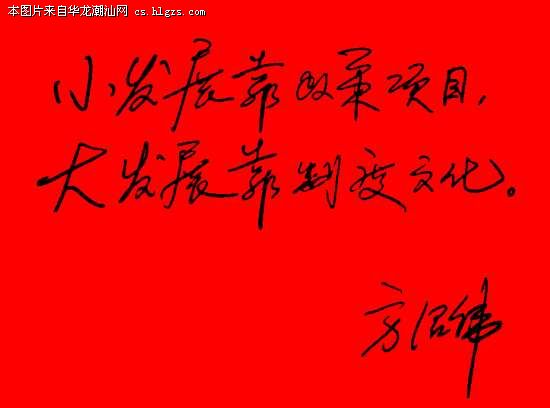 本图片来自华龙潮汕网 cs.hlgzs.com
小发展靠政策项目，
大发展靠制度文化。